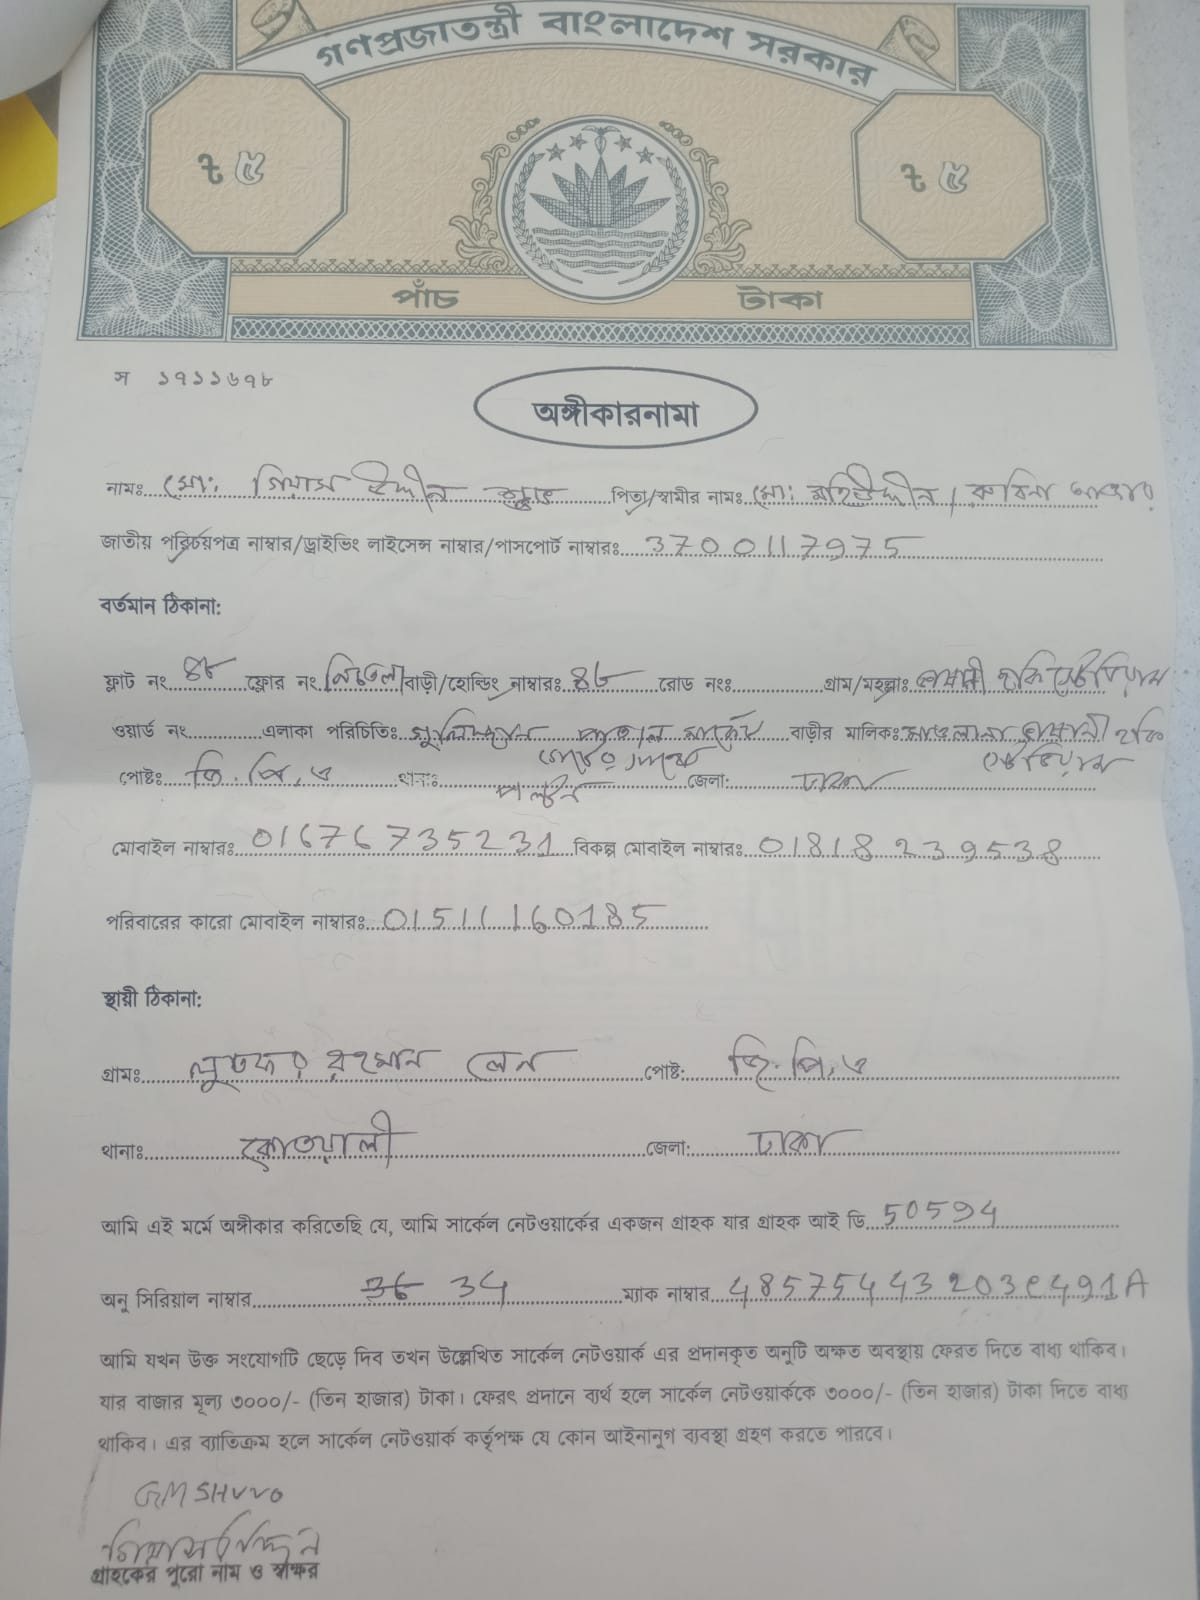 গণপ্রজাতন্ত্রী বাংলাদেশ সরকার
৳ ৫ ৳ ৫
পাঁচ টাকা
স ১৭১১৬৭৮
অঙ্গীকারনামা
নামঃ মো: গিয়াস উদ্দীন পিতা/স্বামীর নামঃ মো: মহিউদ্দীন / রুবিনা আক্তার
জাতীয় পরিচয়পত্র নাম্বার/ড্রাইভিং লাইসেন্স নাম্বার/পাসপোর্ট নাম্বারঃ 3700117975
বর্তমান ঠিকানা:
ফ্লাট নং ৪৮ ফ্লোর নং নিচতলা বাড়ী/হোল্ডিং নাম্বারঃ ৪৮ রোড নংঃ গ্রাম/মহল্লাঃ ভাসানী হকি স্টেডিয়াম
ওয়ার্ড নং এলাকা পরিচিতিঃ গুলিস্তান পাতাল মার্কেট বাড়ীর মালিকঃ মাওলানা ভাসানী হকি
স্টেডিয়াম
পোষ্টঃ জি.পি.ও থানাঃ পল্টন জেলা: ঢাকা
মোবাইল নাম্বারঃ 01676735231 বিকল্প মোবাইল নাম্বারঃ 01818239538
পরিবারের কারো মোবাইল নাম্বারঃ 01511160185
স্থায়ী ঠিকানা:
গ্রামঃ লুতফর রহমান লেন পোষ্ট: জি.পি.ও
থানাঃ কোতয়ালী জেলা: ঢাকা
আমি এই মর্মে অঙ্গীকার করিতেছি যে, আমি সার্কেল নেটওয়ার্কের একজন গ্রাহক যার গ্রাহক আই ডি 50594
অনু সিরিয়াল নাম্বার 34 ম্যাক নাম্বার 48575443203e491A
আমি যখন উক্ত সংযোগটি ছেড়ে দিব তখন উল্লেখিত সার্কেল নেটওয়ার্ক এর প্রদানকৃত অনুটি অক্ষত অবস্থায় ফেরত দিতে বাধ্য থাকিব।
যার বাজার মূল্য ৩০০০/- (তিন হাজার) টাকা। ফেরৎ প্রদানে ব্যর্থ হলে সার্কেল নেটওয়ার্ককে ৩০০০/- (তিন হাজার) টাকা দিতে বাধ্য
থাকিব। এর ব্যাতিক্রম হলে সার্কেল নেটওয়ার্ক কর্তৃপক্ষ যে কোন আইনানুগ ব্যবস্থা গ্রহণ করতে পারবে।
GM SHUVO
গিয়াস উদ্দিন
গ্রাহকের পুরো নাম ও স্বাক্ষর